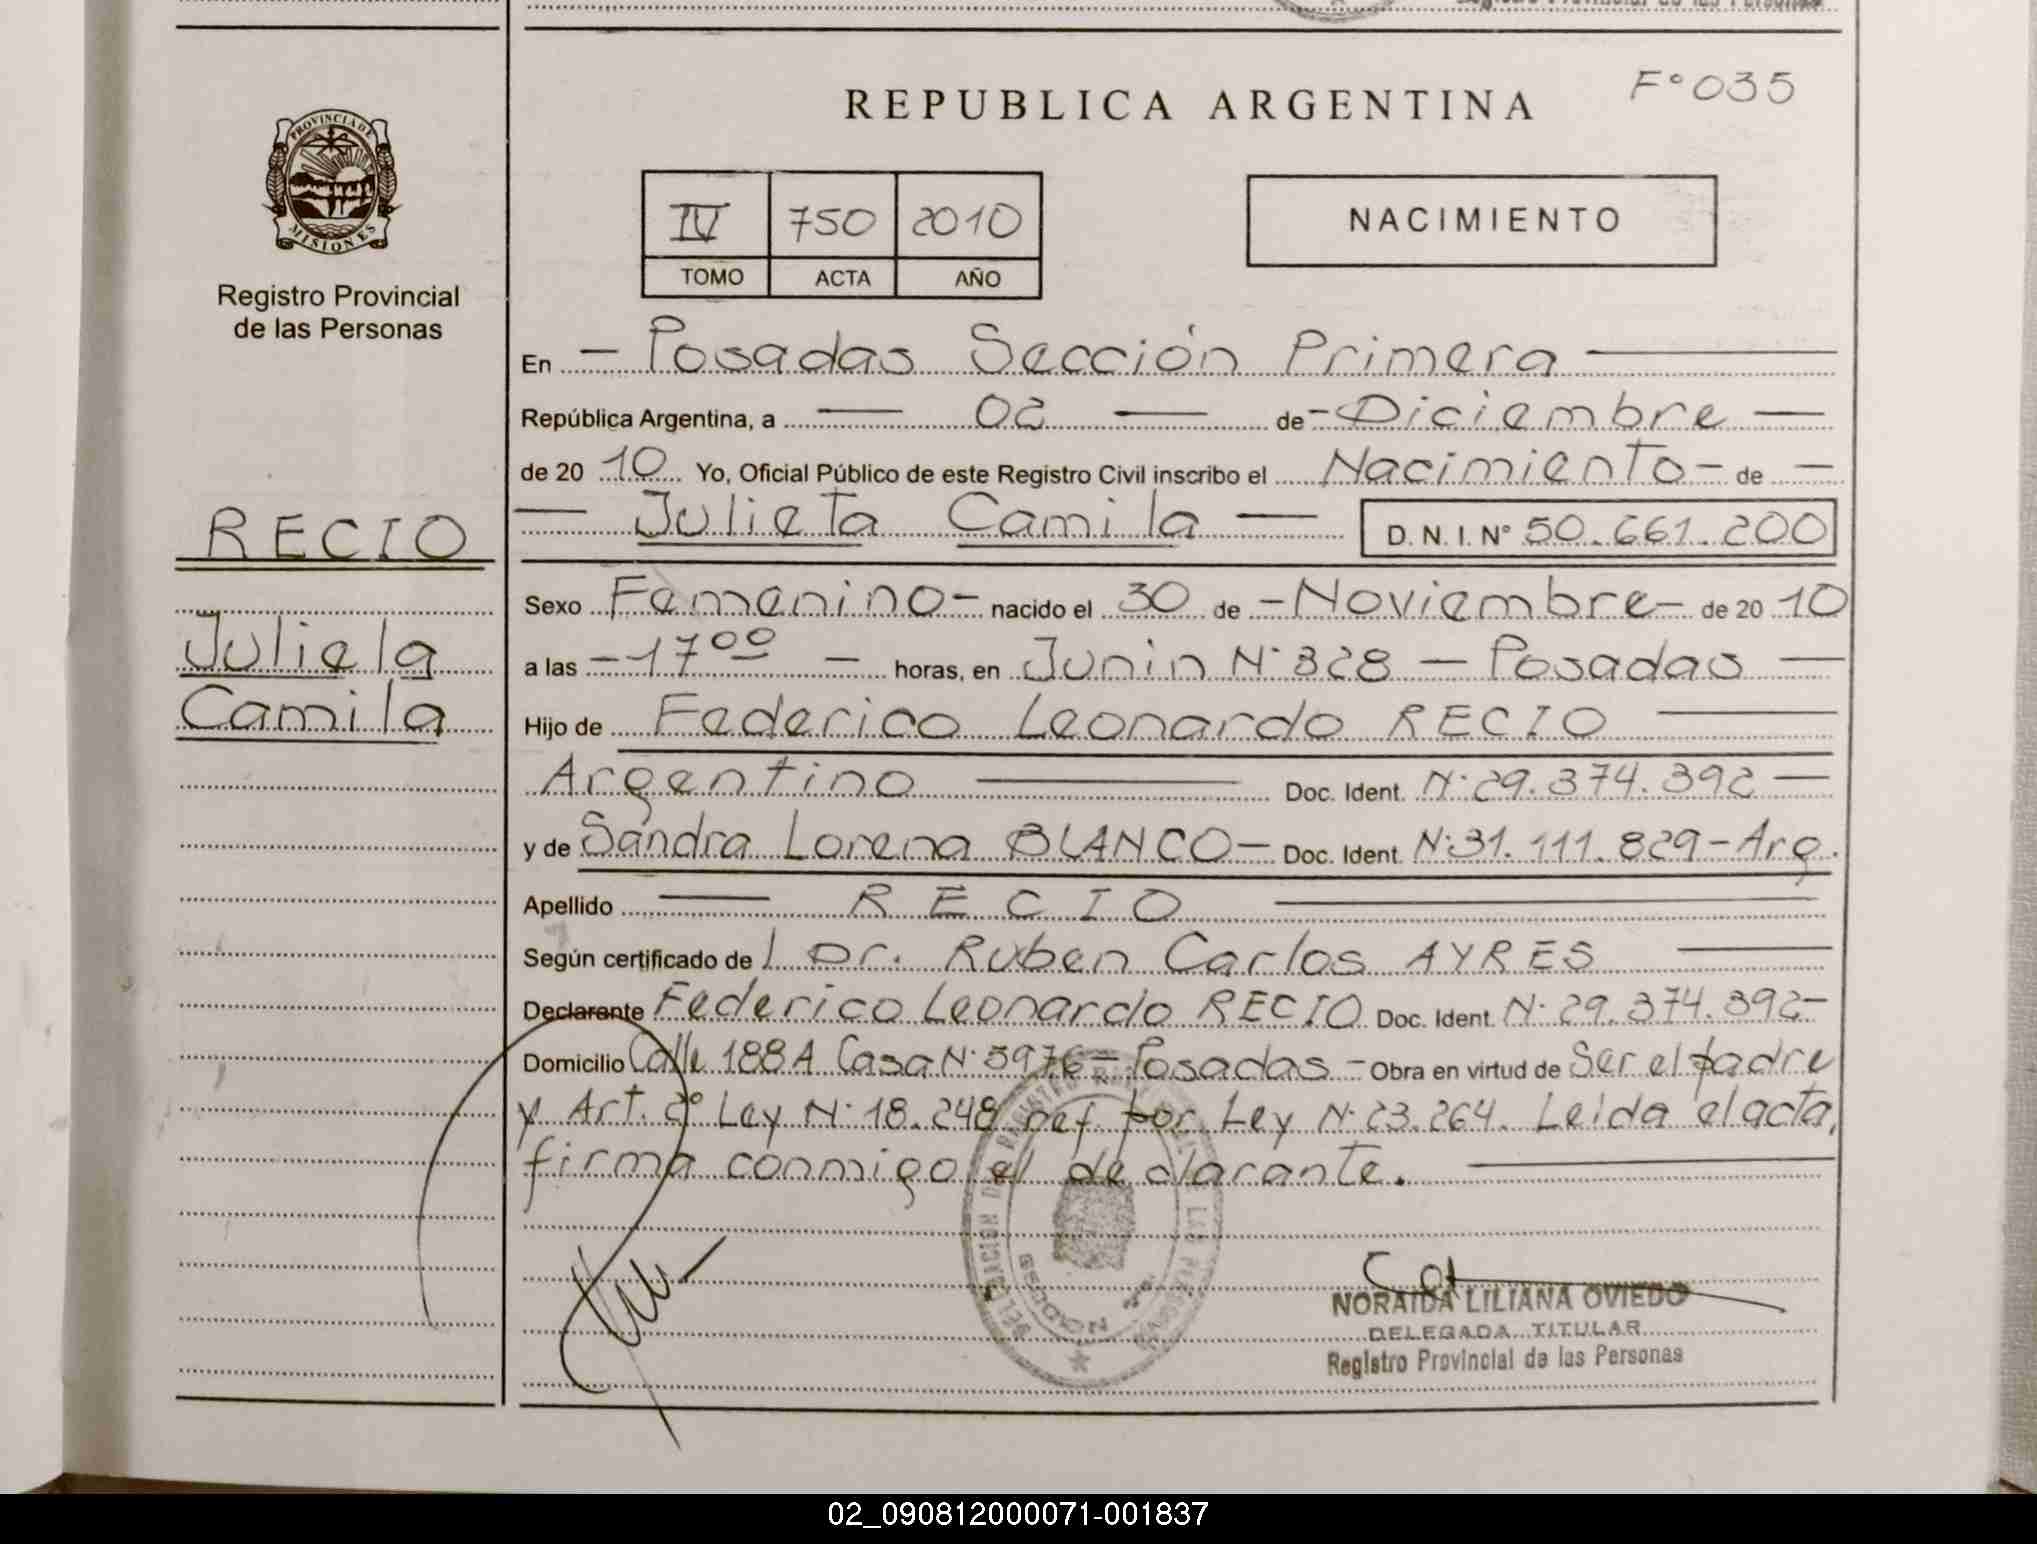 F° 035
REPUBLICA ARGENTINA
PROVINCIA DE
MISIONES
Registro Provincial
de las Personas
IV 750 2010
TOMO ACTA AÑO
NACIMIENTO
En – Posadas Sección Primera —
República Argentina, a — 02 — de – Diciembre —
de 20 10 Yo, Oficial Público de este Registro Civil inscribo el Nacimiento – de —
— Julieta Camila — D. N. I. N° 50.661.200
RECIO
Julieta
Camila
Sexo Femenino – nacido el 30 de – Noviembre – de 20 10
a las – 17 00 – horas, en Junin N° 328 — Posadas —
Hijo de Federico Leonardo RECIO —
Argentino — Doc. Ident. N° 29.374.392 —
y de Sandra Lorena BLANCO – Doc. Ident. N° 31.111.829 – Arg.
Apellido — RECIO —
Según certificado de l Dr. Ruben Carlos AYRES —
Declarante Federico Leonardo RECIO Doc. Ident. N° 29.374.392 –
Domicilio Calle 188 A Casa N° 5976 – Posadas – Obra en virtud de Ser el padre
y Art. 2° Ley N° 18.248 ref. por Ley N° 23.264. Leida el acta,
firma conmigo el declarante. —
NORAIDA LILIANA OVIEDO
DELEGADA TITULAR
Registro Provincial de las Personas
02_090812000071-001837